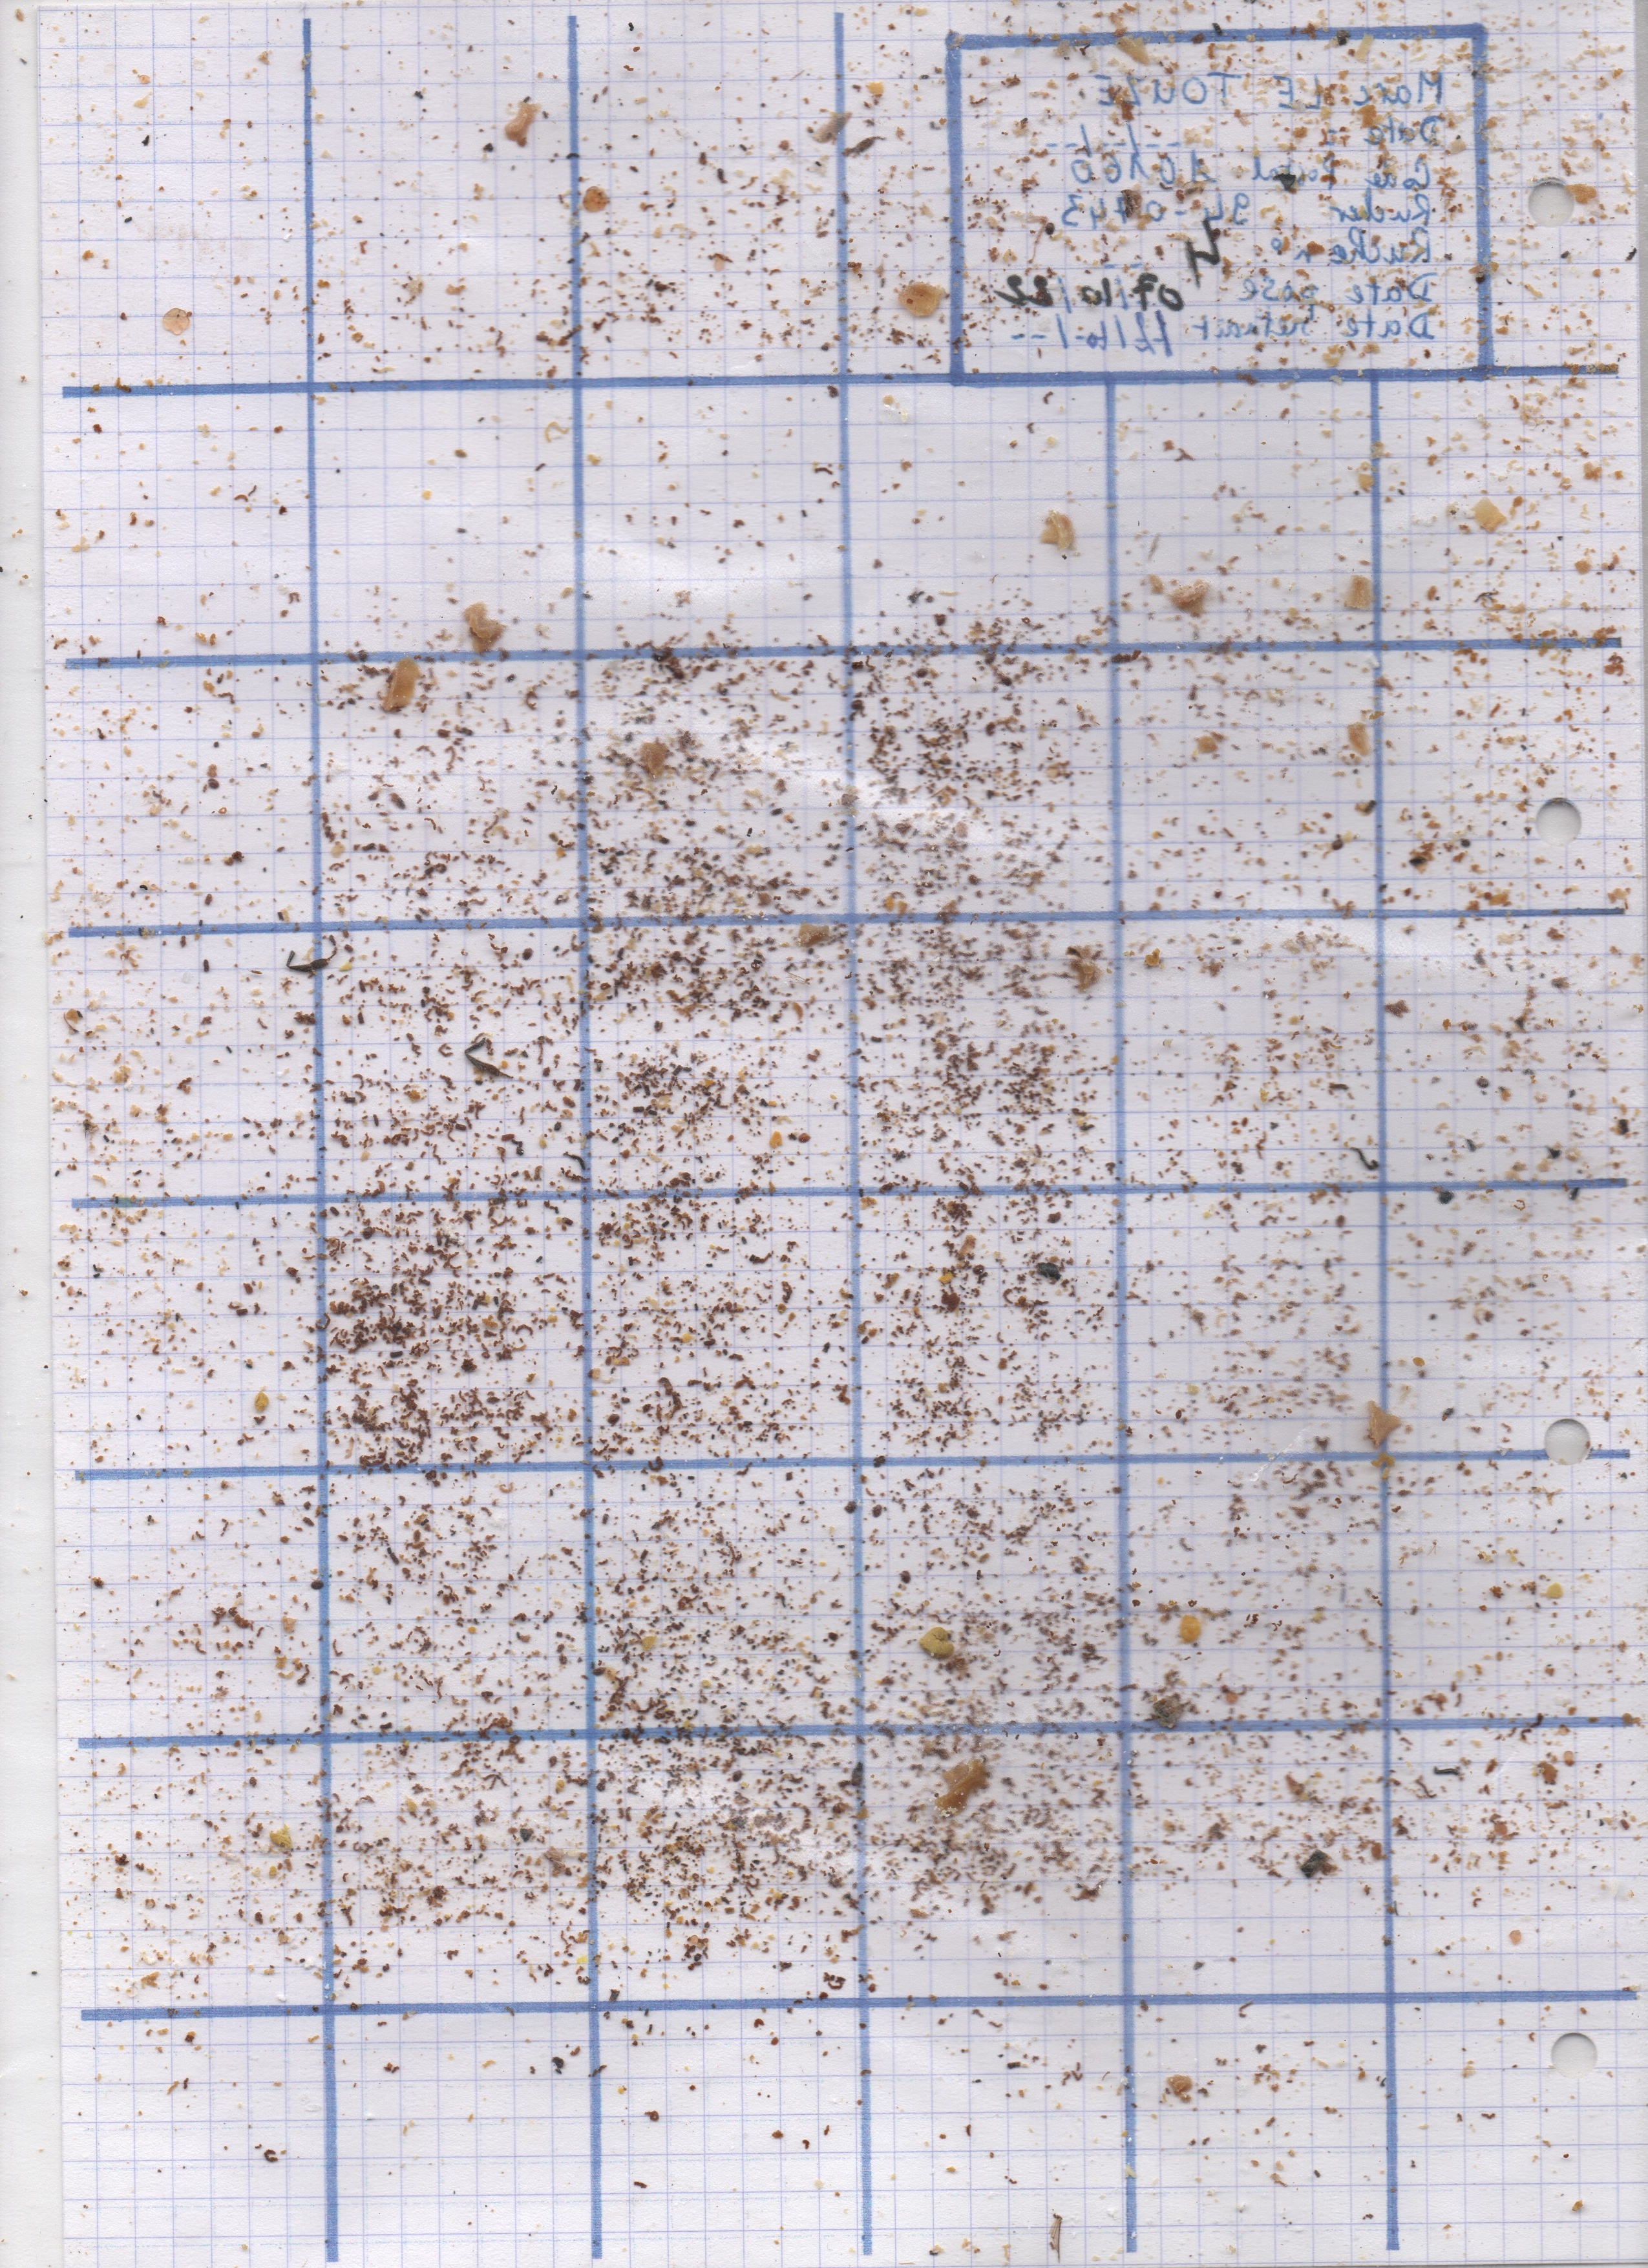 Marc LE TOUZE
Date = --/--/--
Code Postal 16160
Rucher 94-0143
Ruche n° 4
Date pose 07/10/22
Date retrait 12/10/--